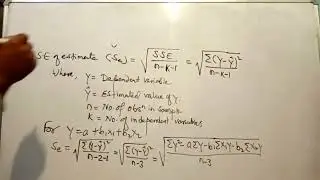 SE of estimate (Se) = √SSE/n-k-1 = √Σ(Y-Ŷ)²/n-k-1
Where, Y = Dependent variable
Ŷ = Estimated value of Y.
n = No. of obsⁿ in sample
K = No. of independent variables
For Y = a + b₁x₁ + b₂x₂
Se = √Σ(Y-Ŷ)²/n-2-1 = √Σ(Y-Ŷ)²/n-3 = √ΣY²-aΣY-b₁ΣX₁Y-b₂ΣX₂Y/n-3